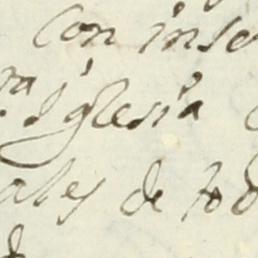 Con inse
ra Iglesia
ales de to